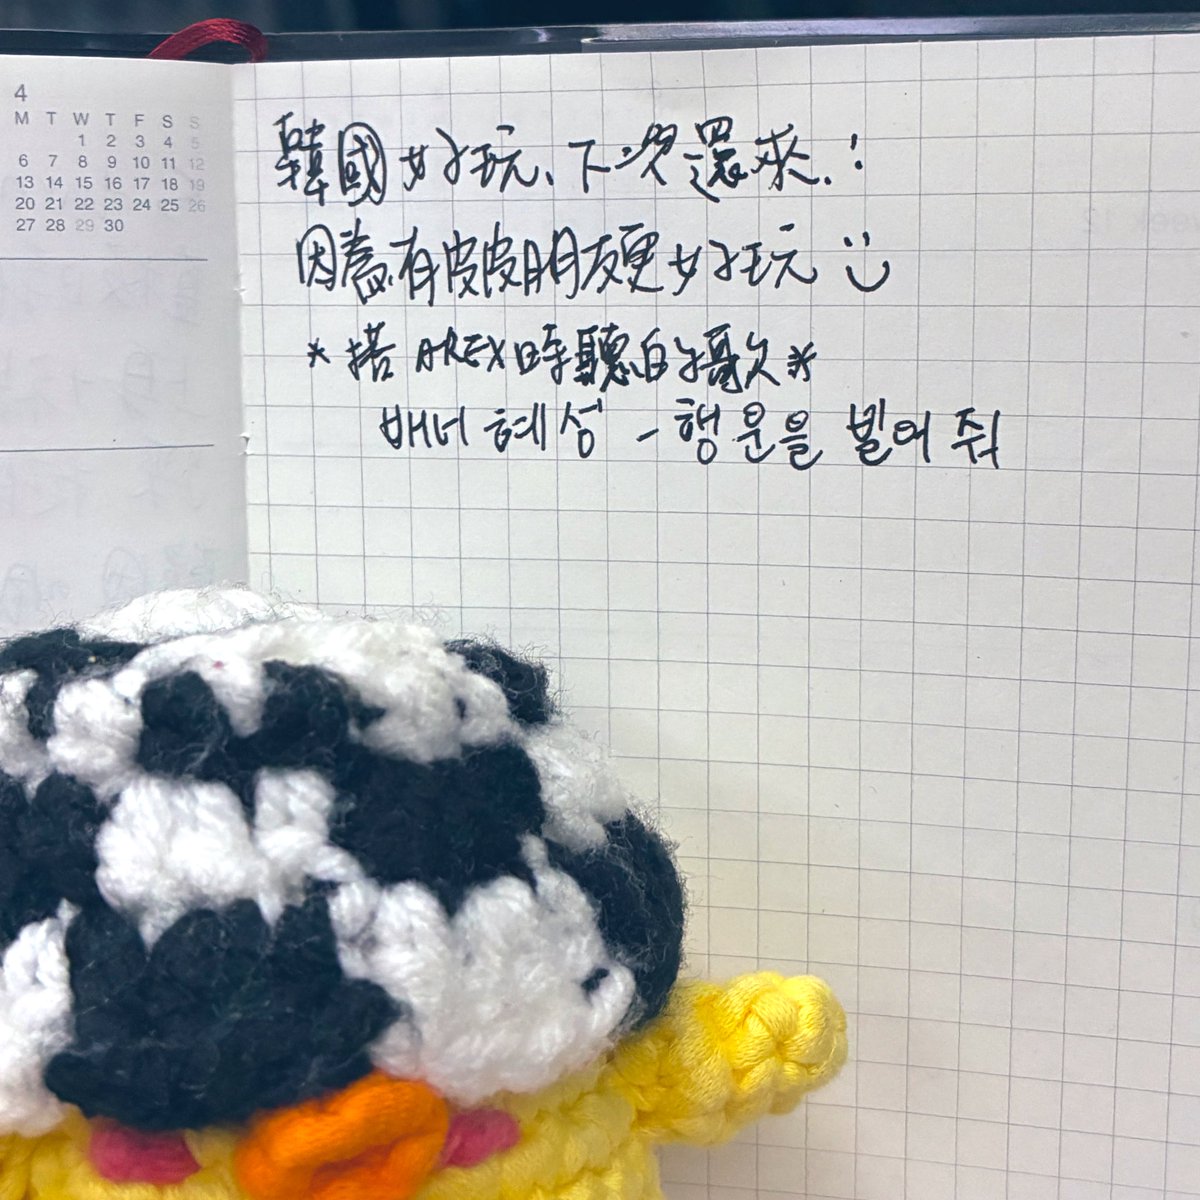 4
M T W T F S S
1 2 3 4 5
6 7 8 9 10 11 12
13 14 15 16 17 18 19
20 21 22 23 24 25 26
27 28 29 30
韓國好玩、下次還來!
因為有皮皮朋友更好玩 :)
*搭 AREX時聽的歌*
배너 혜성 - 행운을 빌어 줘